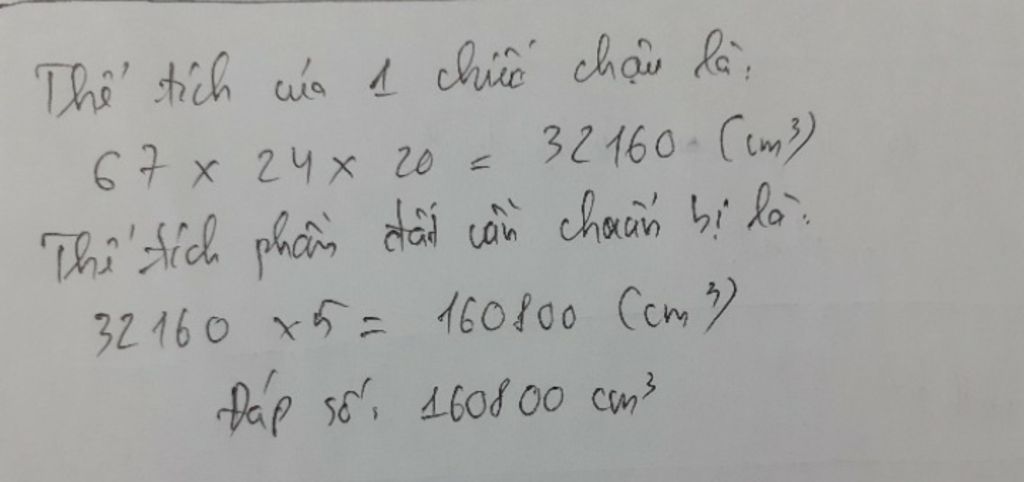 Thể tích của 1 chiếc chậu là:
67 x 24 x 20 = 32160 (cm³)
Thể tích phần đất cần chuẩn bị là:
32160 x 5 = 160800 (cm³)
Đáp số: 160800 cm³